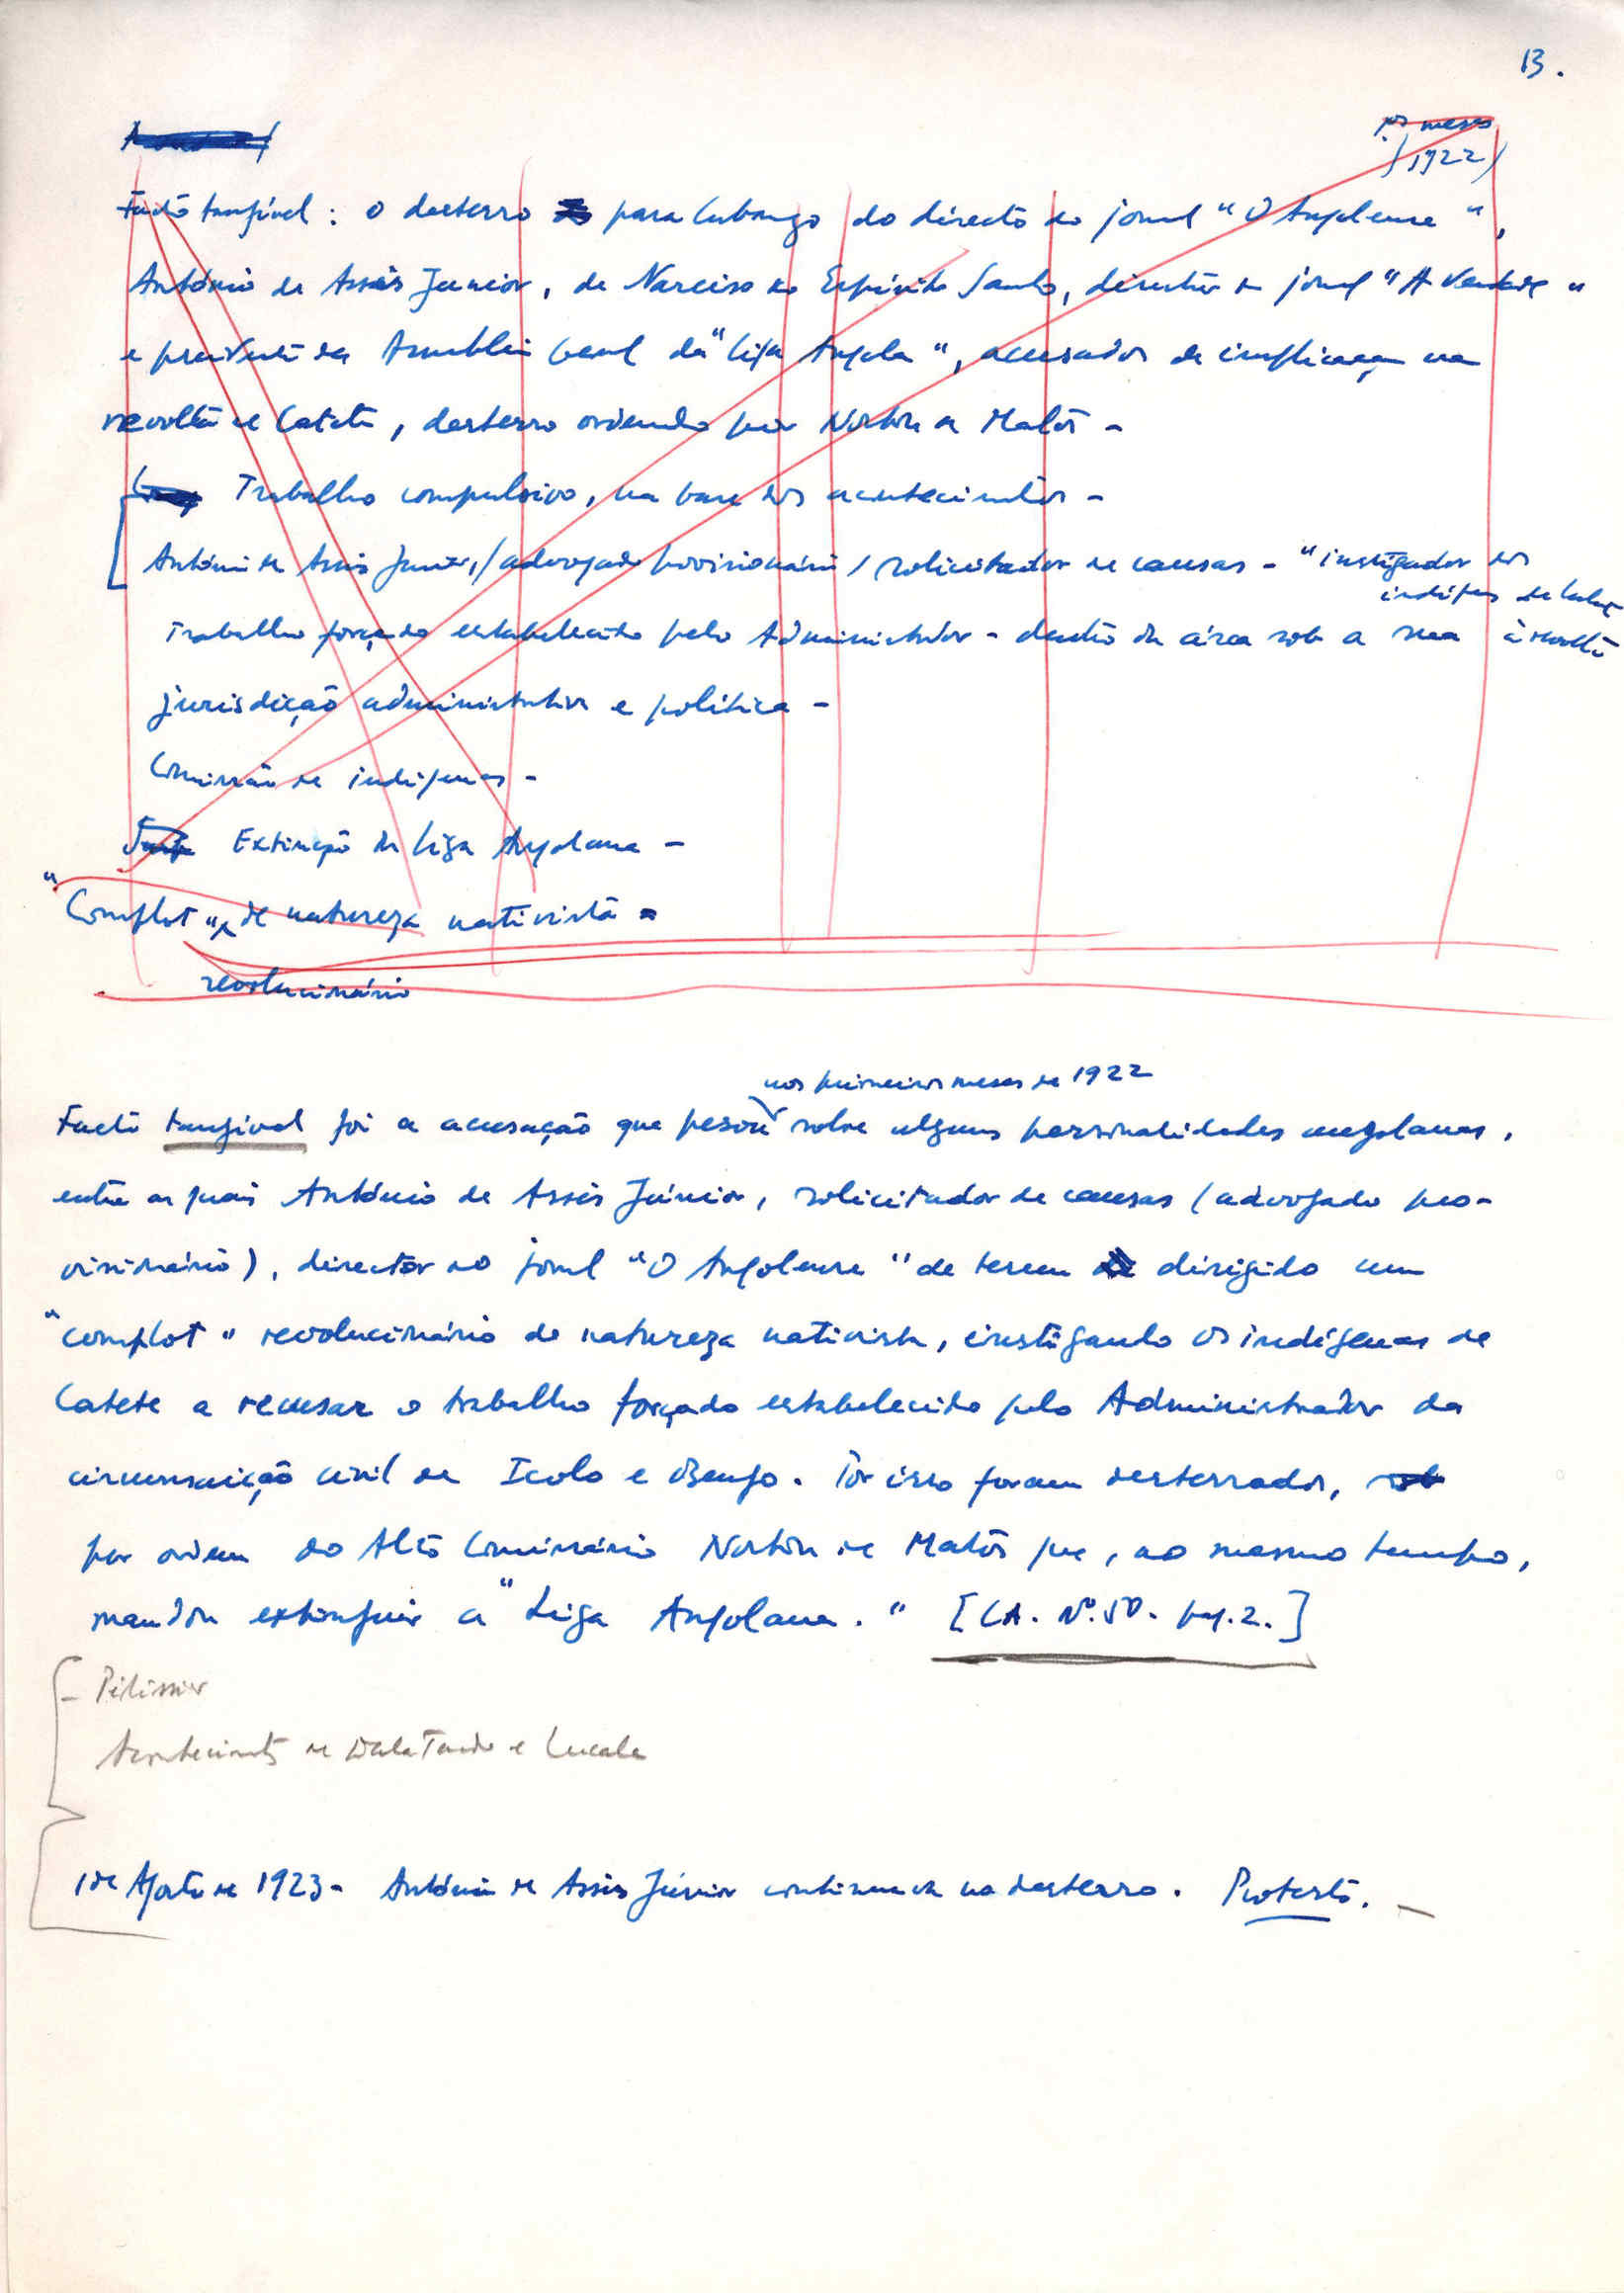 13.
pros meses
(1922)
Facto tangível : o desterro para Lubango do director do jornal "O Angolense",
António de Assis Junior, de Narciso do Espírito Santo, director do jornal "A Verdade"
e presidente da Assembleia Geral da "Liga Angola", acusados de implicação na
revolta de Catete, desterro ordenado por Norton de Matos -
Trabalho compulsivo, na base dos acontecimentos -
António de Assis Junior, / advogado provisionário / solicitador de causas - "instigador dos
indígenas de Catete
à revolta
Trabalho forçado estabelecido pelo Administrador - dentro da área sob a sua
jurisdição administrativa e política -
Comissão de indígenas -
Extinção da Liga Angolana -
"Complot", de natureza nativista -
revolucionário
nos primeiros meses de 1922
Facto tangível foi a acusação que pesou sobre algumas personalidades angolanas,
entre as quais António de Assis Júnior, solicitador de causas (advogado pro-
visionário), director do jornal "O Angolense" de terem dirigido um
"complot" revolucionário de natureza nativista, instigando os indígenas de
Catete a recusar o trabalho forçado estabelecido pelo Administrador da
circunscrição civil de Icolo e Bengo. Por isso foram desterrados,
por ordem do Alto Comissário Norton de Matos que, ao mesmo tempo,
mandou extinguir a "Liga Angolana." [CA. Nº. 50. pag. 2.]
- Pélissier
Acontecimentos de Dala Tando e Lucala
1 de Agosto de 1923 - António de Assis Júnior continuava no desterro. Protesto. -